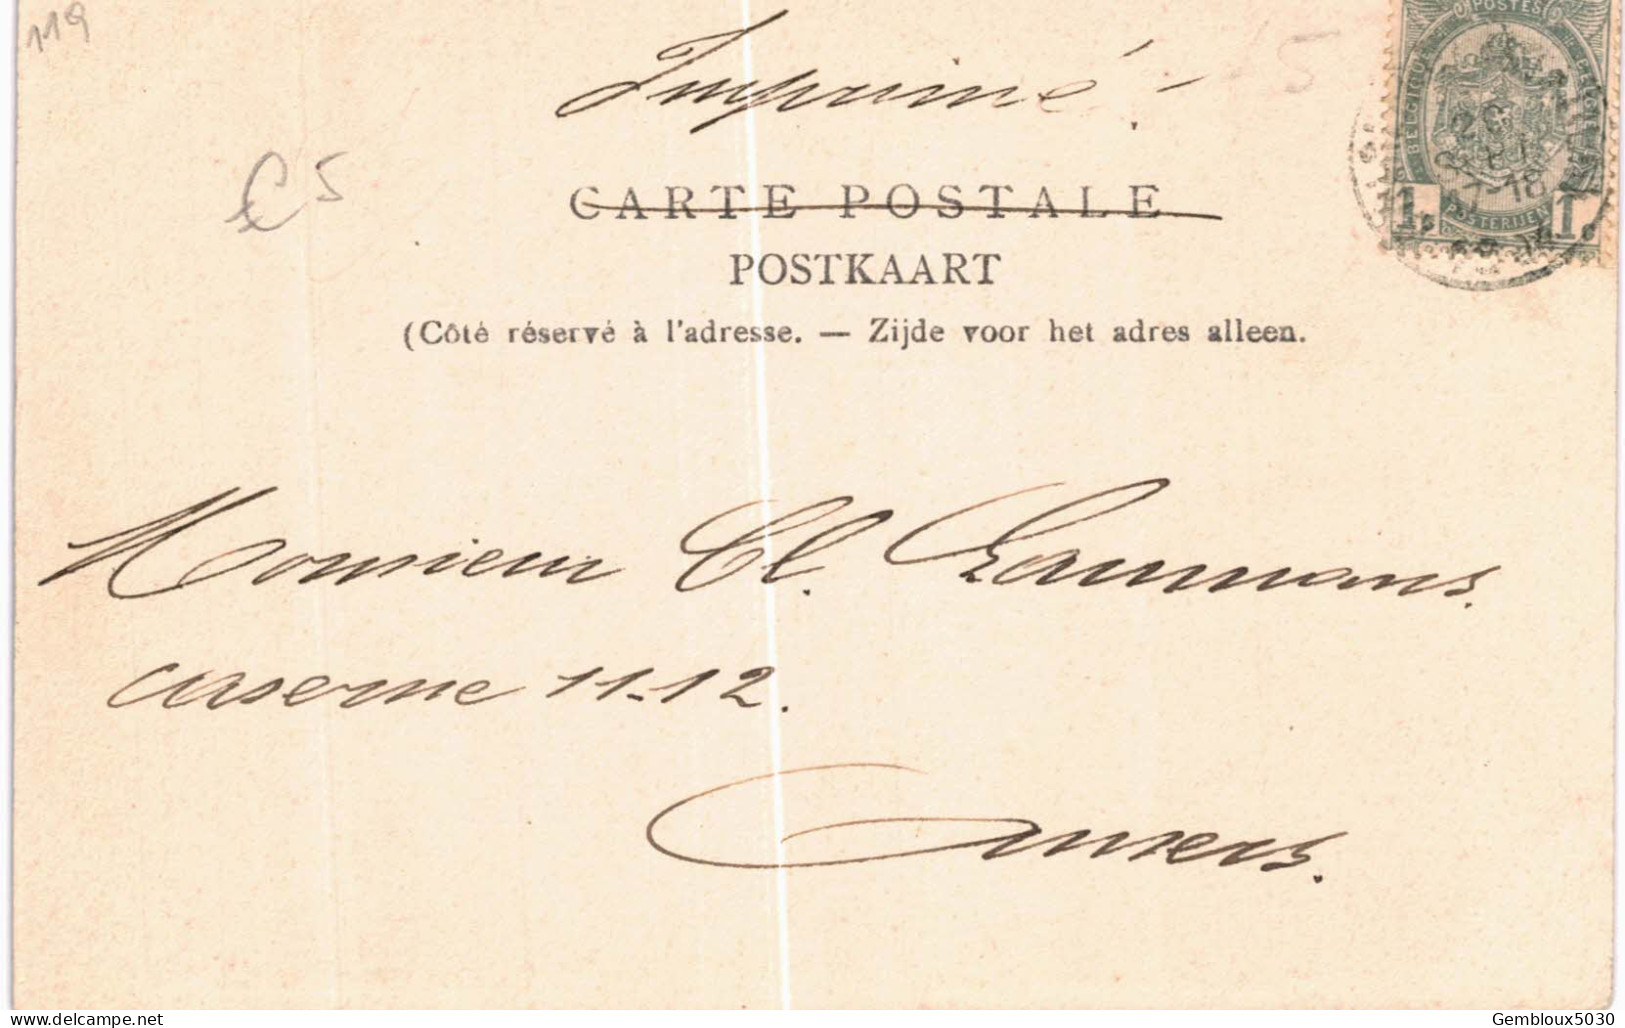 119
Imprimé.
5
POSTES
BELGIQUE
BELGIË
POSTERIJEN
1. 1.
€5
CARTE POSTALE
POSTKAART
(Côté réservé à l'adresse. — Zijde voor het adres alleen.
Monsieur Cl.
caserne 11-12.
Anvers.
www.delcampe.net
Gembloux5030